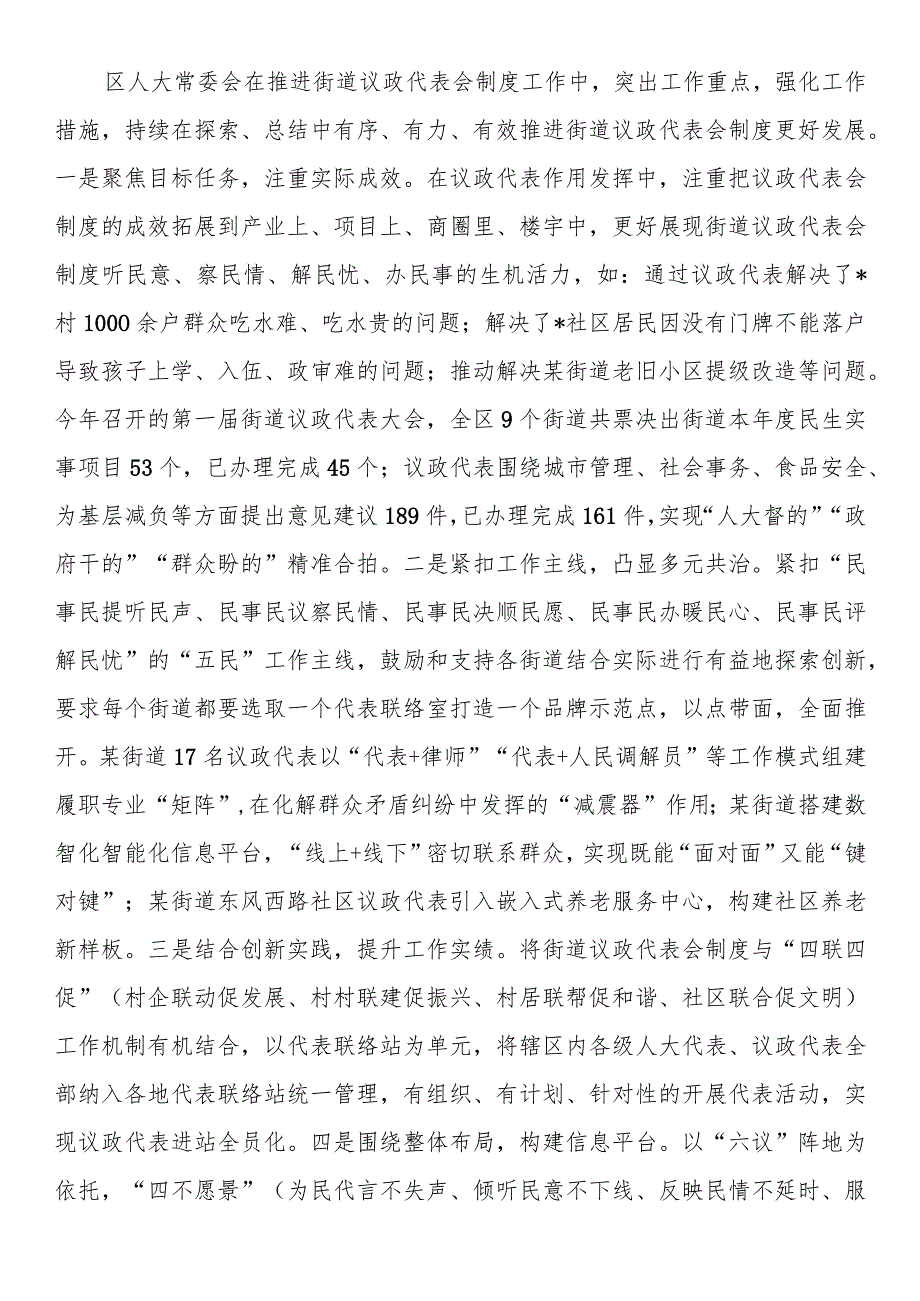 区人大常委会在推进街道议政代表会制度工作中，突出工作重点，强化工作
措施，持续在探索、总结中有序、有力、有效推进街道议政代表会制度更好发展。
一是聚焦目标任务，注重实际成效。在议政代表作用发挥中，注重把议政代表会
制度的成效拓展到产业上、项目上、商圈里、楼宇中，更好展现街道议政代表会
制度听民意、察民情、解民忧、办民事的生机活力，如：通过议政代表解决了*
村 1000 余户群众吃水难、吃水贵的问题；解决了*社区居民因没有门牌不能落户
导致孩子上学、入伍、政审难的问题；推动解决某街道老旧小区提级改造等问题。
今年召开的第一届街道议政代表大会，全区 9 个街道共票决出街道本年度民生实
事项目 53 个，已办理完成 45 个；议政代表围绕城市管理、社会事务、食品安全、
为基层减负等方面提出意见建议 189 件,已办理完成 161 件,实现“人大督的”“政
府干的”“群众盼的”精准合拍。二是紧扣工作主线，凸显多元共治。紧扣“民
事民提听民声、民事民议察民情、民事民决顺民愿、民事民办暖民心、民事民评
解民忧”的“五民”工作主线，鼓励和支持各街道结合实际进行有益地探索创新，
要求每个街道都要选取一个代表联络室打造一个品牌示范点，以点带面，全面推
开。某街道 17 名议政代表以“代表+律师”“代表+人民调解员”等工作模式组建
履职专业“矩阵”,在化解群众矛盾纠纷中发挥的“减震器”作用；某街道搭建数
智化智能化信息平台，“线上+线下”密切联系群众,实现既能“面对面”又能“键
对键”；某街道东风西路社区议政代表引入嵌入式养老服务中心，构建社区养老
新样板。三是结合创新实践，提升工作实绩。将街道议政代表会制度与“四联四
促”（村企联动促发展、村村联建促振兴、村居联帮促和谐、社区联合促文明）
工作机制有机结合，以代表联络站为单元，将辖区内各级人大代表、议政代表全
部纳入各地代表联络站统一管理，有组织、有计划、针对性的开展代表活动，实
现议政代表进站全员化。四是围绕整体布局，构建信息平台。以“六议”阵地为
依托，“四不愿景”（为民代言不失声、倾听民意不下线、反映民情不延时、服